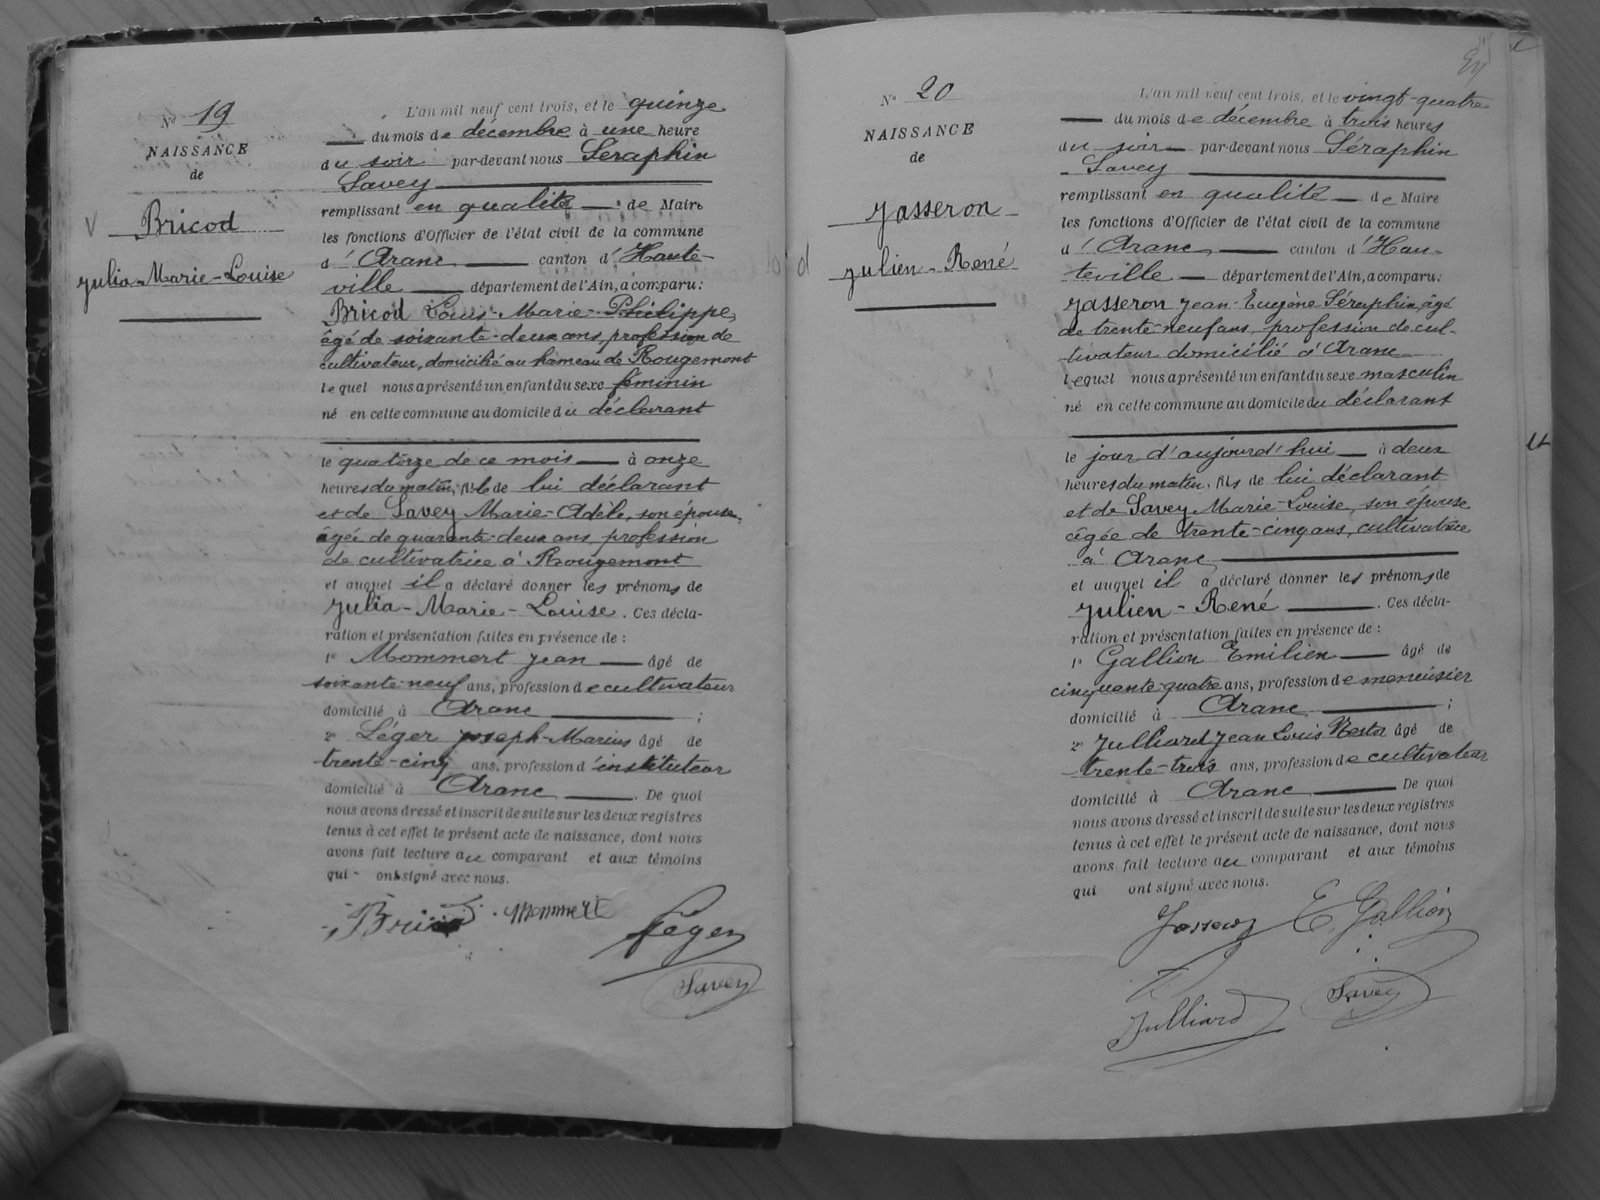 N° 19
NAISSANCE
de
Bricod
Julia-Marie-Louise
L'an mil neuf cent trois, et le quinze
du mois de décembre à une heure
du soir par-devant nous Séraphin
Savey
remplissant en qualité de Maire
les fonctions d'Officier de l'état civil de la commune
d'Aranc canton d'Haute-
ville département de l'Ain, a comparu :
Bricod Louis-Marie-Philippe,
âgé de soixante-deux ans, profession de
cultivateur, domicilié au hameau de Rougemont
lequel nous a présenté un enfant du sexe féminin
né en cette commune au domicile du déclarant
le quatorze de ce mois à onze
heures du matin, fille de lui déclarant
et de Savey Marie-Adèle, son épouse,
âgée de quarante-deux ans, profession
de cultivatrice à Rougemont
et auquel il a déclaré donner les prénoms de
Julia-Marie-Louise. Ces décla-
ration et présentation faites en présence de :
1° Mommert Jean âgé de
soixante-neuf ans, profession de cultivateur
domicilié à Aranc ;
2° Léger Joseph-Marius âgé de
trente-cinq ans, profession d'instituteur
domicilié à Aranc. De quoi
nous avons dressé et inscrit de suite sur les deux registres
tenus à cet effet le présent acte de naissance, dont nous
avons fait lecture au comparant et aux témoins
qui ont signé avec nous.
Bricod Mommert
Léger
Savey
N° 20
NAISSANCE
de
Jasseron
Julien-René
L'an mil neuf cent trois, et le vingt-quatre
du mois de décembre à trois heures
du soir par-devant nous Séraphin
Savey
remplissant en qualité de Maire
les fonctions d'Officier de l'état civil de la commune
d'Aranc canton d'Hau-
teville département de l'Ain, a comparu :
Jasseron Jean-Eugène Séraphin, âgé
de trente-neuf ans, profession de cul-
tivateur domicilié à Aranc
lequel nous a présenté un enfant du sexe masculin
né en cette commune au domicile du déclarant
le jour d'aujourd'hui à deux
heures du matin, fils de lui déclarant
et de Savey Marie-Louise, son épouse
âgée de trente-cinq ans, cultivatrice
à Aranc
et auquel il a déclaré donner les prénoms de
Julien-René. Ces décla-
ration et présentation faites en présence de :
1° Gallion Emilien âgé de
cinquante-quatre ans, profession de menuisier
domicilié à Aranc ;
2° Julliard Jean Louis Nestor âgé de
trente-trois ans, profession de cultivateur
domicilié à Aranc De quoi
nous avons dressé et inscrit de suite sur les deux registres
tenus à cet effet le présent acte de naissance, dont nous
avons fait lecture au comparant et aux témoins
qui ont signé avec nous.
Jasseron E. Gallion
Savey
Julliard